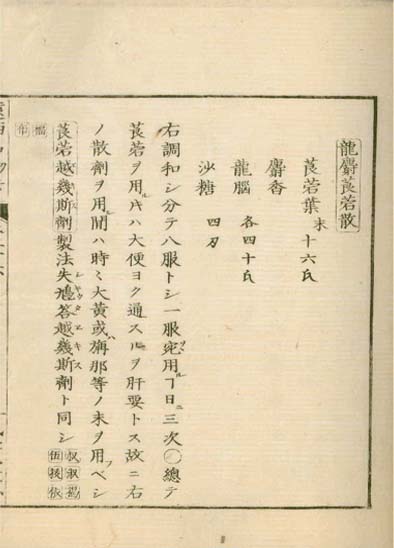 龍麝莨菪散
莨菪葉末 十六氏
麝香
龍腦 各四十氏
沙糖 四刃
右調和シ分テ八服トシ一服宛用ルヿ日ニ三次〇總テ
莨菪ヲ用ルキハ大便ヨク通スルヲ肝要トス故ニ右
ノ散劑ヲ用ル間ハ時々大黄或ハ旃那等ノ末ヲ用フベシ
莨菪越幾斯劑製法失鳩答越幾斯劑ト同シ